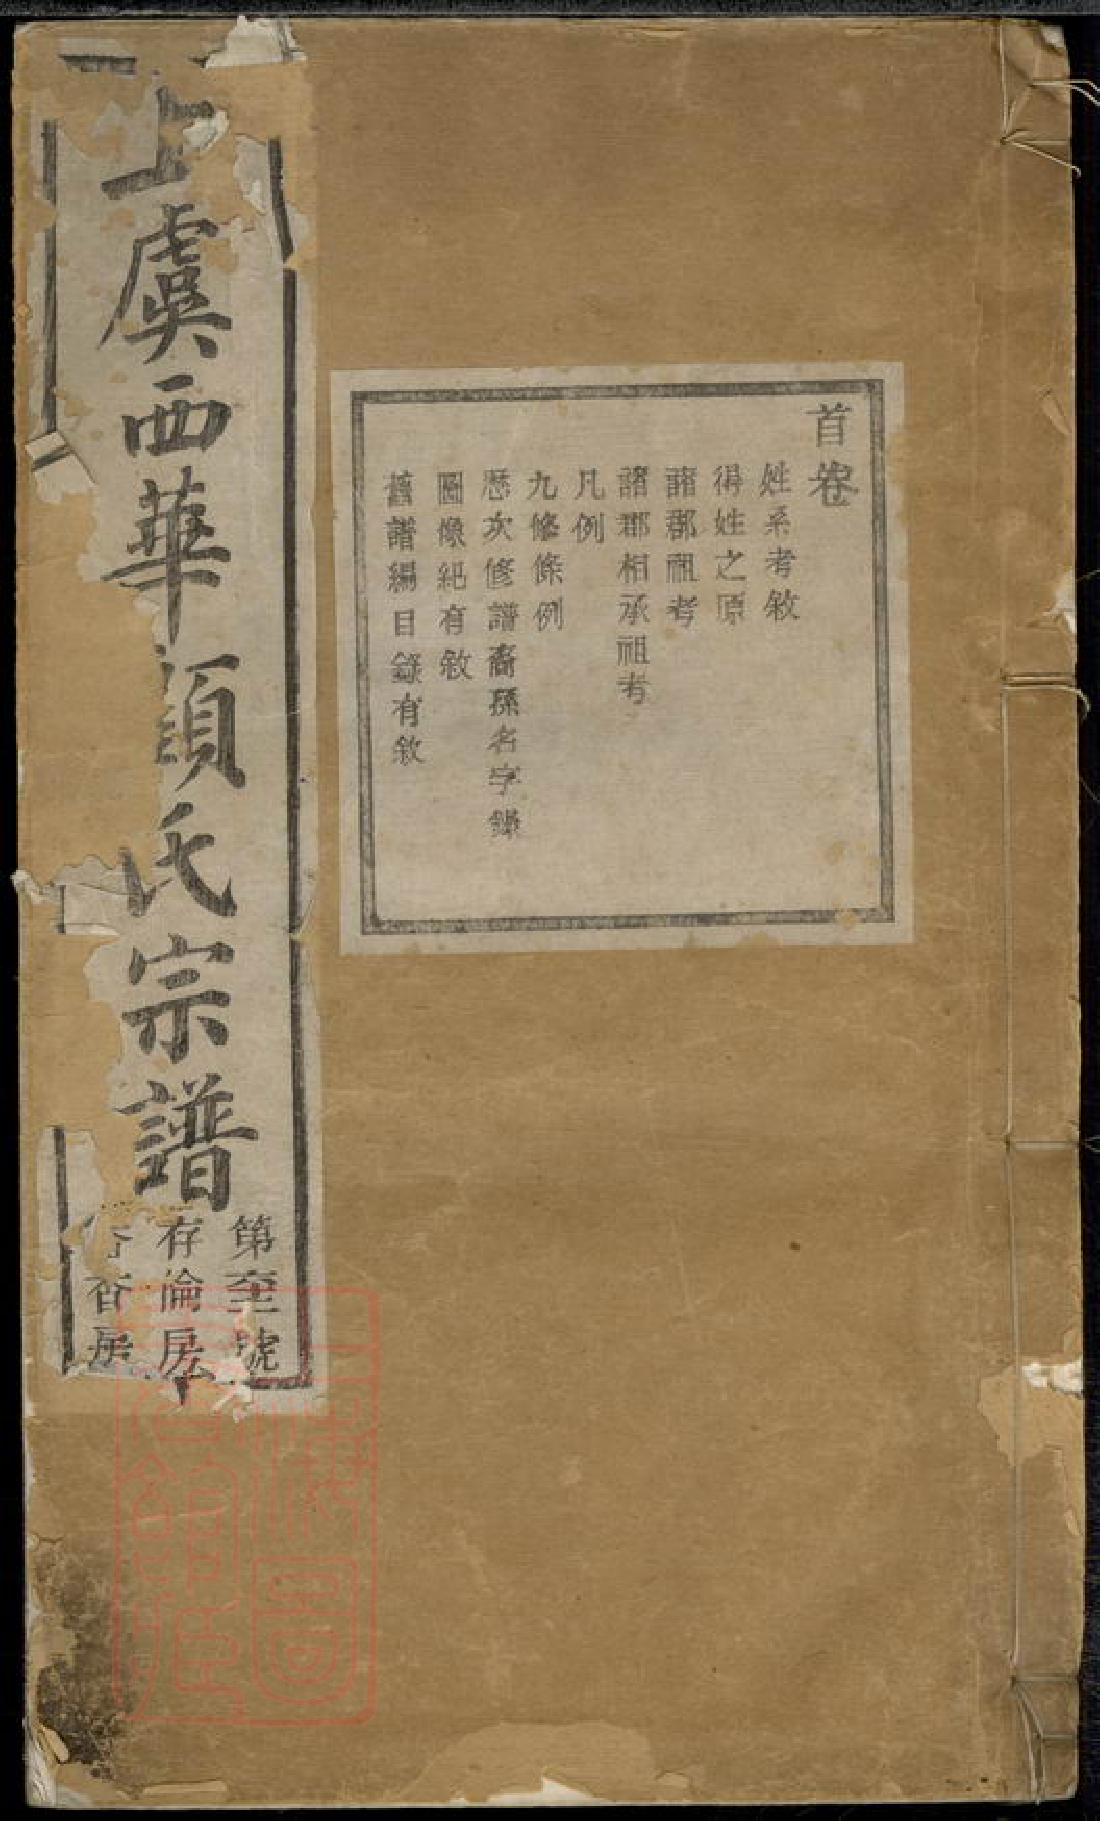 首卷
姓系考敘
得姓之原
諸郡祖考
諸郡相承祖考
凡例
九修條例
歷次修譜裔孫名字錄
圖像紀有敘
舊譜編目錄有敘
上虞西華顧氏宗譜
第號
存房
上海圖書館藏